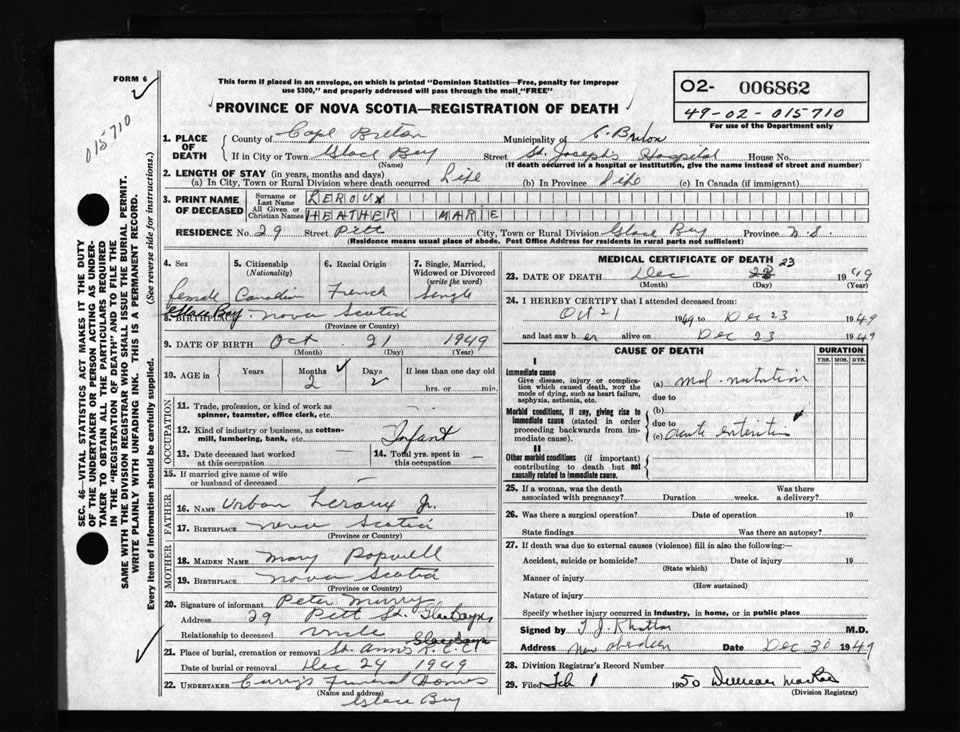 FORM 6
This form if placed in an envelope, on which is printed "Dominion Statistics—Free, penalty for improper
use $300," and properly addressed will pass through the mail "FREE"
PROVINCE OF NOVA SCOTIA—REGISTRATION OF DEATH
O2- 006862
49-02-015710
For use of the Department only
015710
SEC. 46—VITAL STATISTICS ACT MAKES IT THE DUTY
OF THE UNDERTAKER OR PERSON ACTING AS UNDER-
TAKER TO OBTAIN ALL THE PARTICULARS REQUIRED
IN THE "REGISTRATION OF DEATH" AND TO FILE THE
SAME WITH THE DIVISION REGISTRAR WHO SHALL ISSUE THE BURIAL PERMIT.
WRITE PLAINLY WITH UNFADING INK. THIS IS A PERMANENT RECORD.
Every item of information should be carefully supplied. (See reverse side for instructions.)
1. PLACE OF DEATH County of Cape Breton Municipality of C. Breton
If in City or Town Glace Bay Street St. Joseph's Hospital House No.
(Name) (If death occurred in a hospital or institution, give the name instead of street and number)
2. LENGTH OF STAY (in years, months and days)
(a) In City, Town or Rural Division where death occurred Life (b) In Province Life (c) In Canada (if immigrant)
3. PRINT NAME OF DECEASED Surname or Last Name LEROUX
All Given or Christian Names HEATHER MARIE
RESIDENCE No. 29 Street Pitt City, Town or Rural Division Glace Bay Province N.S.
(Residence means usual place of abode. Post Office Address for residents in rural parts not sufficient)
4. Sex 5. Citizenship (Nationality) 6. Racial Origin 7. Single, Married, Widowed or Divorced (write the word)
Female Canadian French Single
8. BIRTHPLACE Glace Bay Nova Scotia
(Province or Country)
9. DATE OF BIRTH Oct. 21 1949
(Month) (Day) (Year)
10. AGE in Years Months Days If less than one day old
2 2 hrs. or min.
OCCUPATION
11. Trade, profession, or kind of work as
spinner, teamster, office clerk, etc.
12. Kind of industry or business, as cotton-
mill, lumbering, bank, etc. Infant
13. Date deceased last worked
at this occupation
14. Total yrs. spent in
this occupation
15. If married give name of wife
or husband of deceased
FATHER
16. Name Urban Leroux Jr.
17. Birthplace Nova Scotia
(Province or Country)
MOTHER
18. Maiden Name Mary
19. Birthplace Nova Scotia
(Province or Country)
20. Signature of informant Peter Murry
Address 29 Pitt St. Glace Bay
Relationship to deceased Uncle
21. Place of burial, cremation or removal St. Anns Glace Bay
Date of burial or removal Dec 24 1949
22. UNDERTAKER Curry's Funeral Homes
(Name and address)
Glace Bay
MEDICAL CERTIFICATE OF DEATH
23. DATE OF DEATH Dec 23 1949
(Month) (Day) (Year)
24. I HEREBY CERTIFY that I attended deceased from
Oct 21 1949 to Dec 23 1949
and last saw her alive on Dec 23 1949
CAUSE OF DEATH DURATION
YRS. MOS. DYS.
I
Immediate cause
Give disease, injury or complica-
tion which caused death, NOT the
mode of dying, such as heart failure,
asphyxia, asthenia, etc.
(a) mal-nutrition
due to
Morbid conditions, if any, giving rise to
immediate cause (stated in order
proceeding backwards from im-
mediate cause).
(b)
due to
(c) acute enteritis
II
Other morbid conditions (if important)
contributing to death but not
causally related to immediate cause.
25. If a woman, was the death
associated with pregnancy? Duration weeks. Was there
a delivery?
26. Was there a surgical operation? Date of operation 19
State findings Was there an autopsy?
27. If death was due to external causes (violence) fill in also the following:—
Accident, suicide or homicide? Date of injury 19
(State which)
Manner of injury
(How sustained)
Nature of injury
Specify whether injury occurred in industry, in home, or in public place
Signed by M.D.
Address New Aberdeen Date Dec 30 1949
28. Division Registrar's Record Number
29. Filed Feb 1 1950 Duncan MacRae
(Division Registrar)